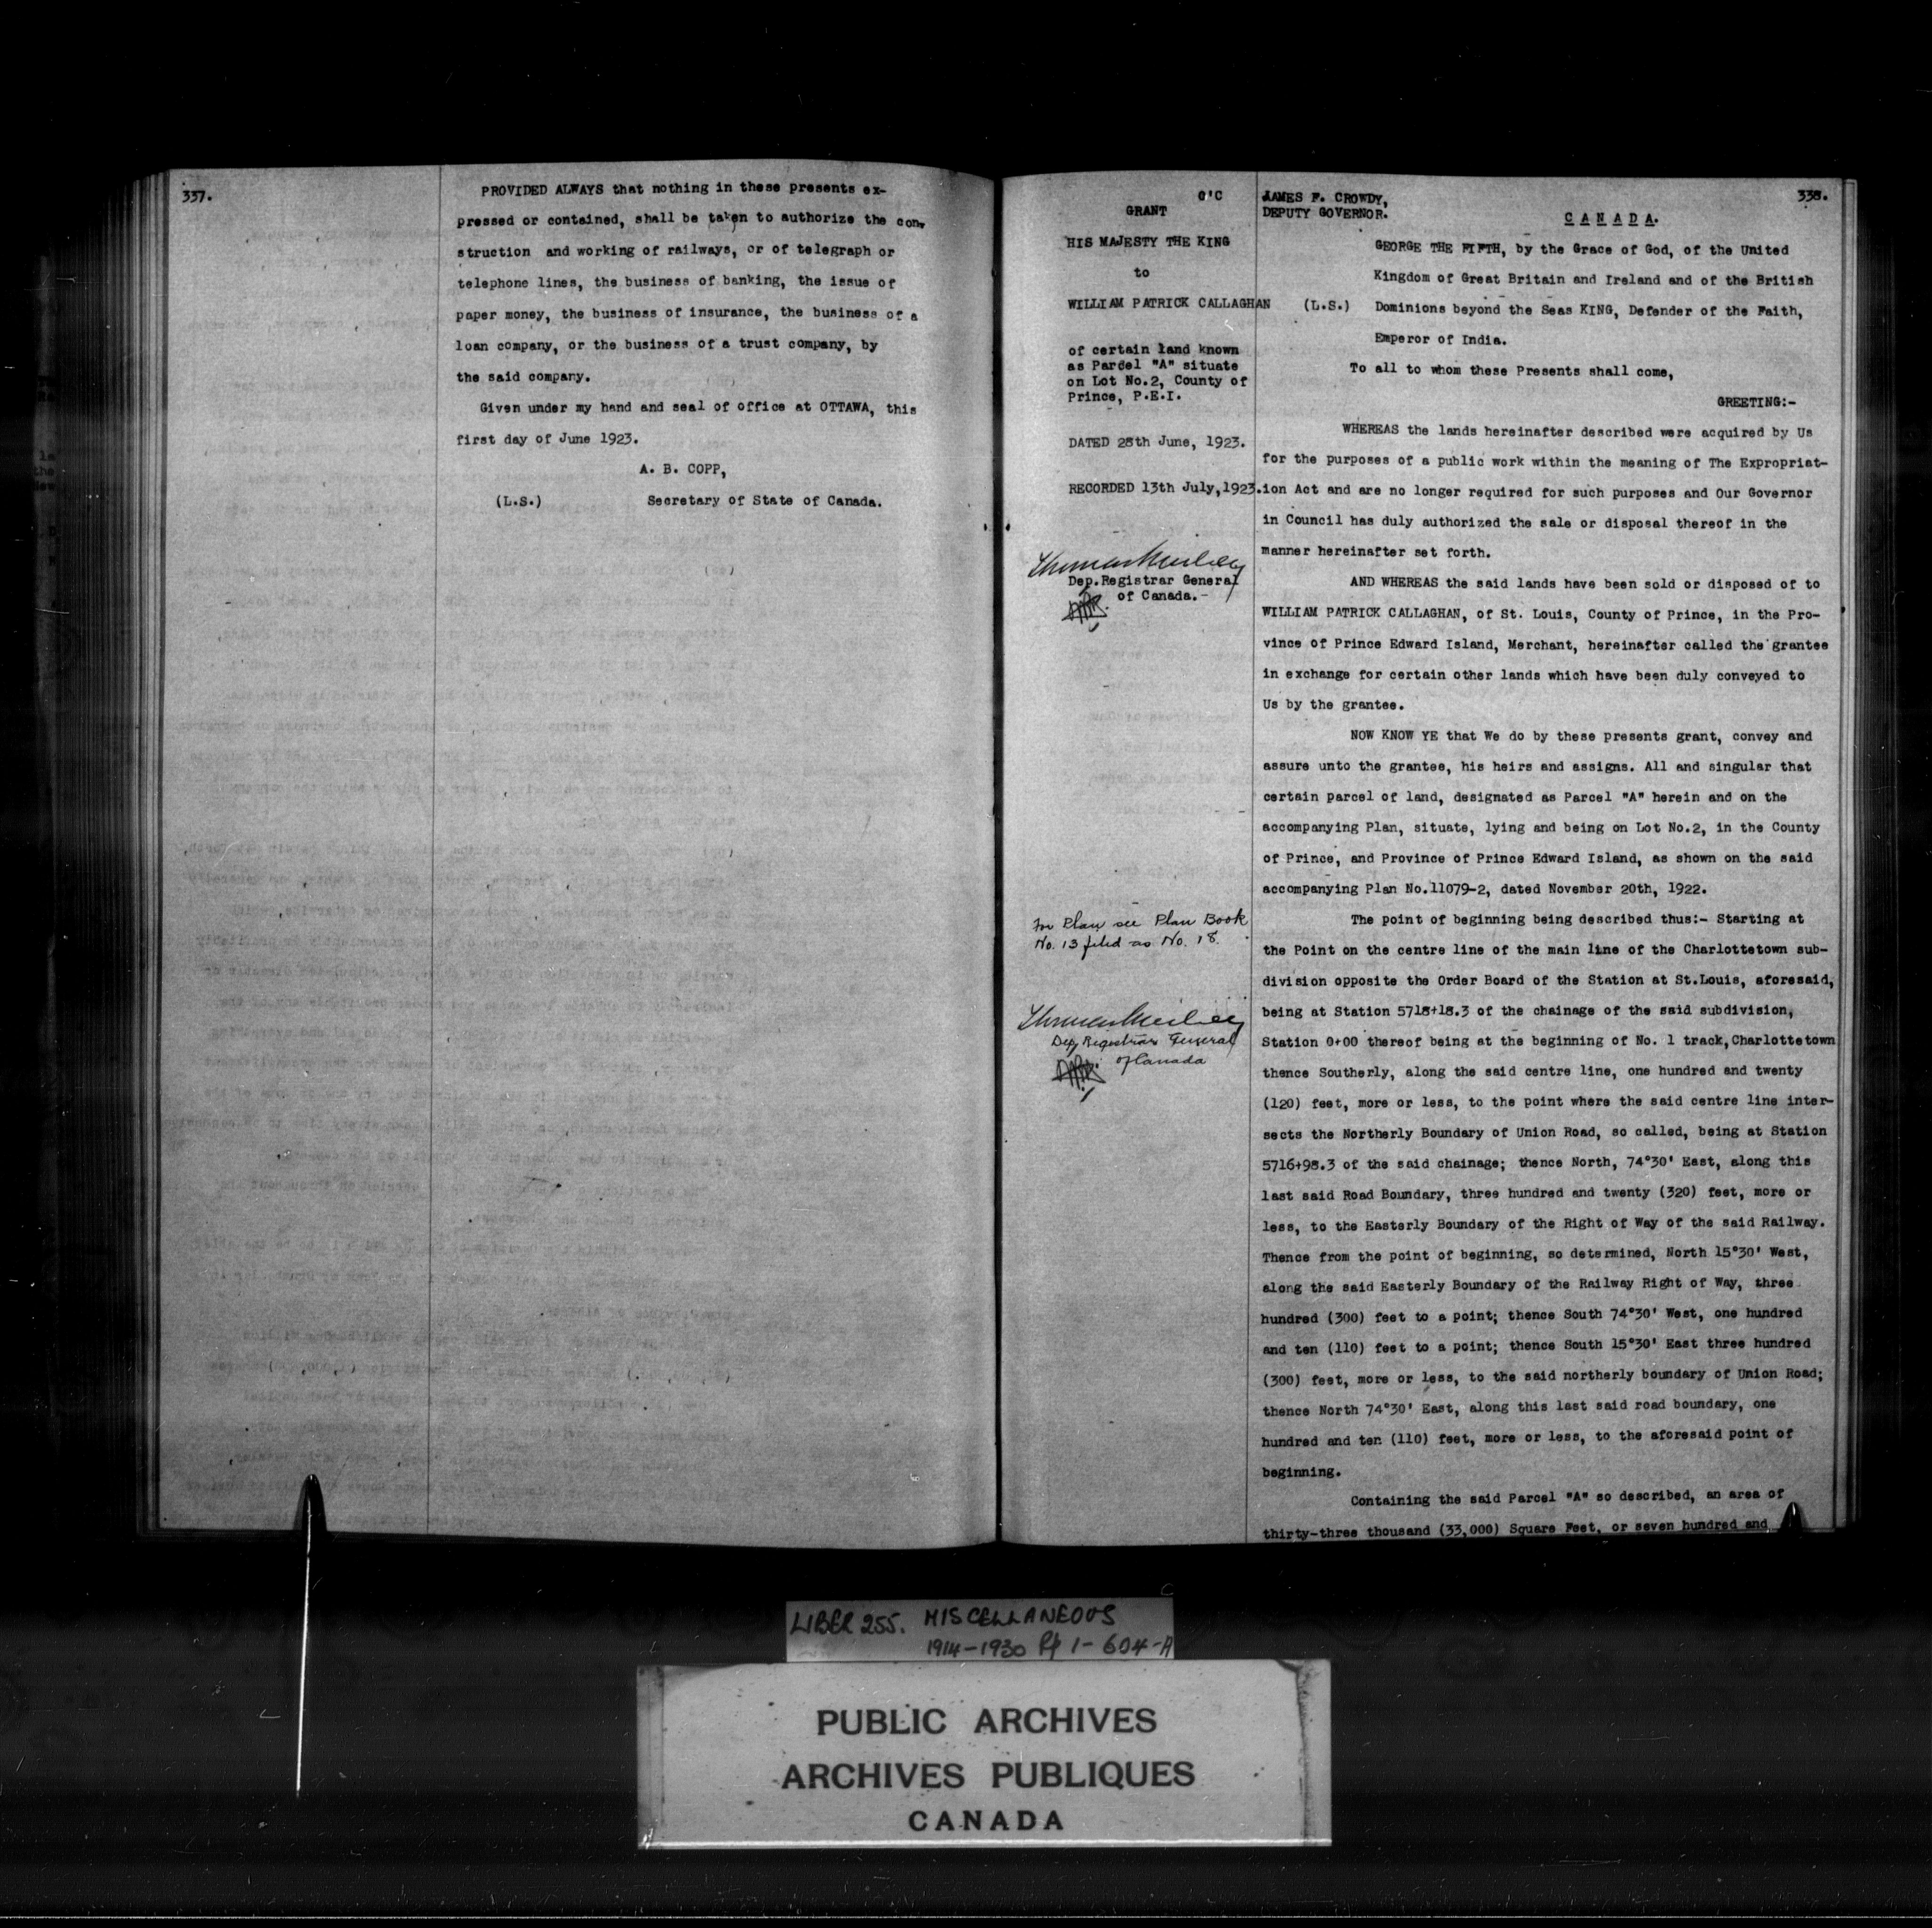 337.
PROVIDED ALWAYS that nothing in these presents ex-
pressed or contained, shall be taken to authorize the con-
struction and working of railways, or of telegraph or
telephone lines, the business of banking, the issue of
paper money, the business of insurance, the business of a
loan company, or the business of a trust company, by
the said company.
Given under my hand and seal of office at OTTAWA, this
first day of June 1923.
A. B. COPP,
(L.S.) Secretary of State of Canada.
G'C
GRANT
HIS MAJESTY THE KING
to
WILLIAM PATRICK CALLAGHAN
of certain land known
as Parcel "A" situate
on Lot No.2, County of
Prince, P.E.I.
DATED 28th June, 1923.
RECORDED 13th July, 1923.
Dep. Registrar General
of Canada.-
For Plan see Plan Book
No. 13 filed as No. 18.
Dep Registrar General
of Canada
338.
JAMES F. CROWDY,
DEPUTY GOVERNOR.
CANADA.
GEORGE THE FIFTH, by the Grace of God, of the United
Kingdom of Great Britain and Ireland and of the British
(L.S.) Dominions beyond the Seas KING, Defender of the Faith,
Emperor of India.
To all to whom these Presents shall come,
GREETING:-
WHEREAS the lands hereinafter described were acquired by Us
for the purposes of a public work within the meaning of The Expropriat-
ion Act and are no longer required for such purposes and Our Governor
in Council has duly authorized the sale or disposal thereof in the
manner hereinafter set forth.
AND WHEREAS the said lands have been sold or disposed of to
WILLIAM PATRICK CALLAGHAN, of St. Louis, County of Prince, in the Pro-
vince of Prince Edward Island, Merchant, hereinafter called the grantee
in exchange for certain other lands which have been duly conveyed to
Us by the grantee.
NOW KNOW YE that We do by these presents grant, convey and
assure unto the grantee, his heirs and assigns. All and singular that
certain parcel of land, designated as Parcel "A" herein and on the
accompanying Plan, situate, lying and being on Lot No.2, in the County
of Prince, and Province of Prince Edward Island, as shown on the said
accompanying Plan No.11079-2, dated November 20th, 1922.
The point of beginning being described thus:- Starting at
the Point on the centre line of the main line of the Charlottetown sub-
division opposite the Order Board of the Station at St.Louis, aforesaid,
being at Station 5718+18.3 of the chainage of the said subdivision,
Station 0+00 thereof being at the beginning of No. 1 track, Charlottetown
thence Southerly, along the said centre line, one hundred and twenty
(120) feet, more or less, to the point where the said centre line inter-
sects the Northerly Boundary of Union Road, so called, being at Station
5716+98.3 of the said chainage; thence North, 74°30' East, along this
last said Road Boundary, three hundred and twenty (320) feet, more or
less, to the Easterly Boundary of the Right of Way of the said Railway.
Thence from the point of beginning, so determined, North 15°30' West,
along the said Easterly Boundary of the Railway Right of Way, three
hundred (300) feet to a point; thence South 74°30' West, one hundred
and ten (110) feet to a point; thence South 15°30' East three hundred
(300) feet, more or less, to the said northerly boundary of Union Road;
thence North 74°30' East, along this last said road boundary, one
hundred and ten (110) feet, more or less, to the aforesaid point of
beginning.
Containing the said Parcel "A" so described, an area of
thirty-three thousand (33,000) Square Feet, or seven hundred and
LIBER 255. MISCELLANEOUS
1914-1930 Pp 1-604-A
PUBLIC ARCHIVES
ARCHIVES PUBLIQUES
CANADA